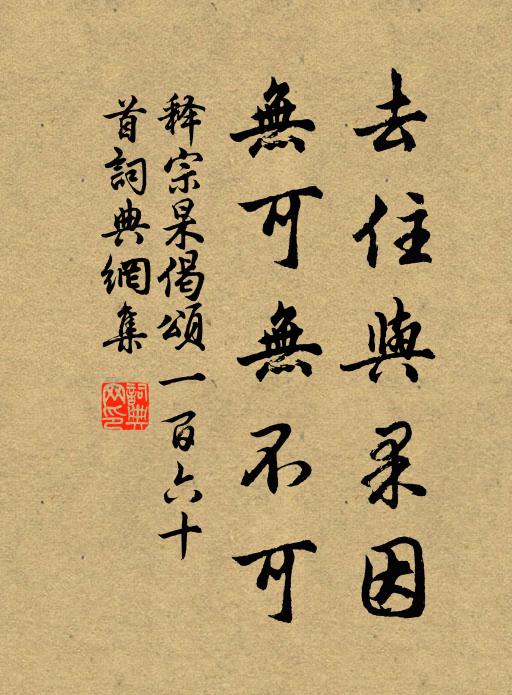 去住與果因
無可無不可
释宗杲偈頌一百六十
首詞典網集
詞典网印